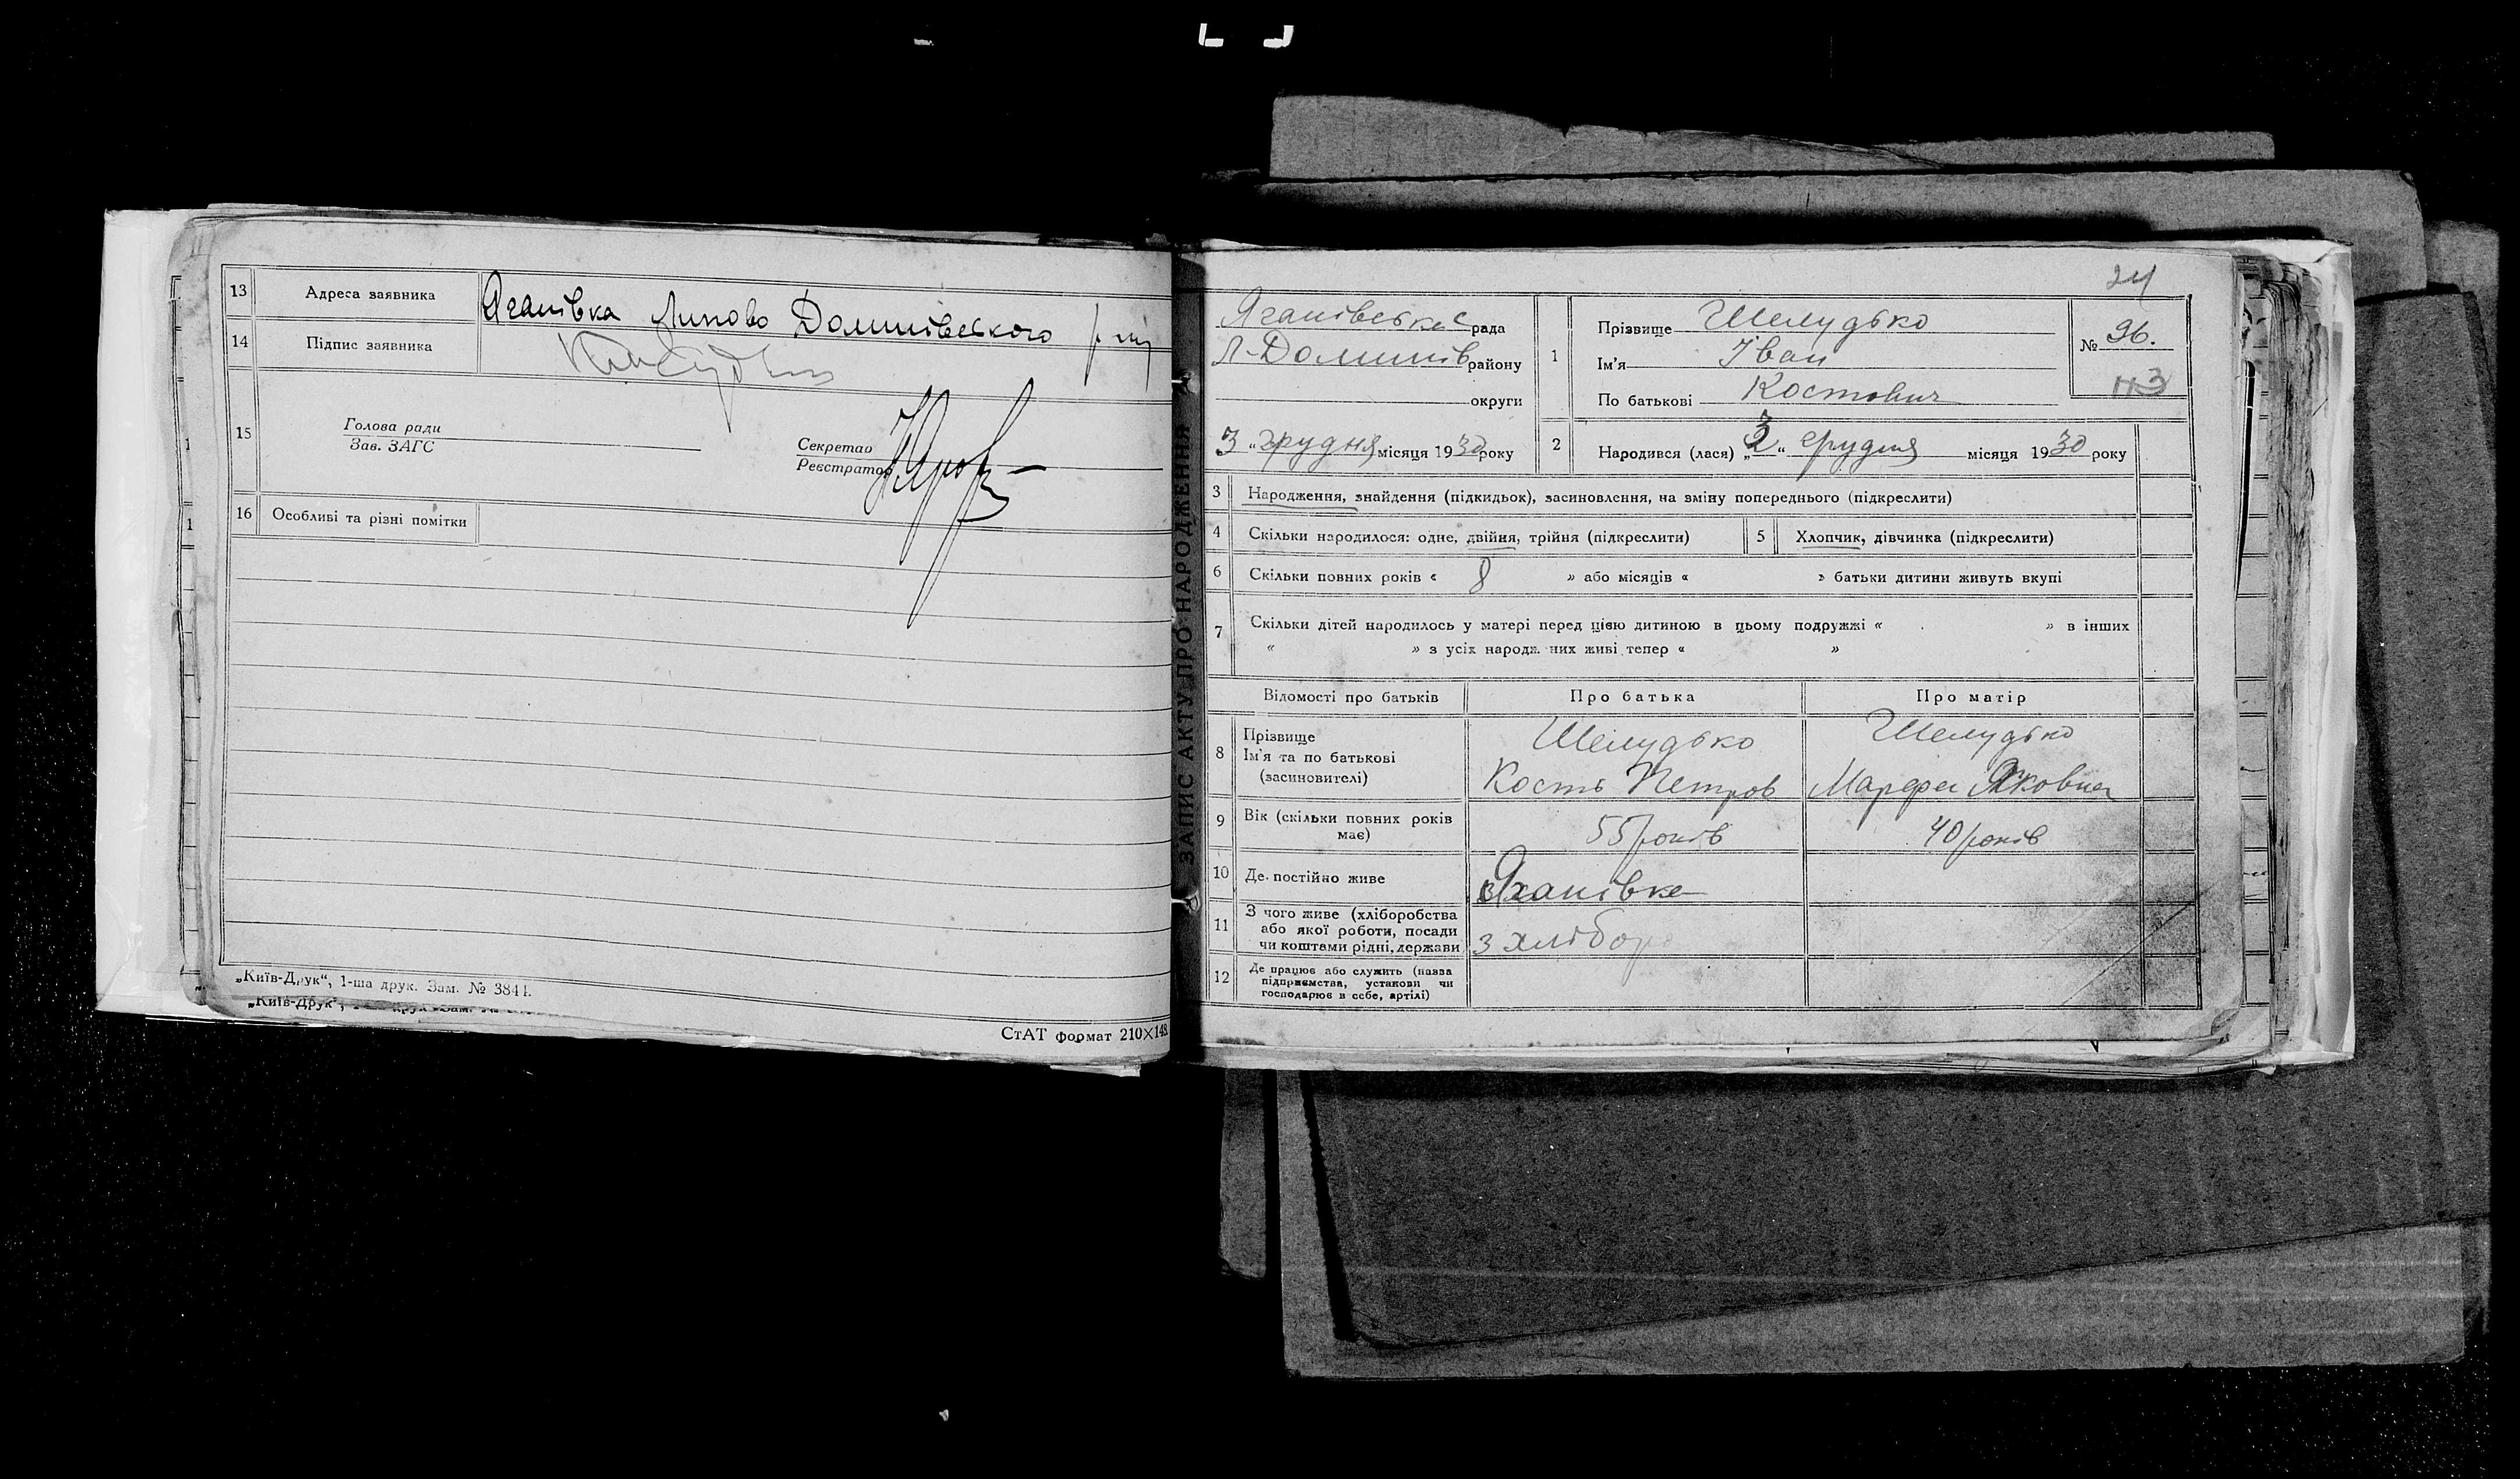 13 Адреса заявника Яганівка Липово Долинівського
14 Підпис заявника
15 Голова ради
Зав. ЗАГС
Секретар
Реєстратор
16 Особливі та різні помітки
„Київ-Друк“, 1-ша друк. Зам. № 3841.
„Київ-Друк“,
СтАТ формат 210×148
ЗАПИС АКТУ ПРО НАРОДЖЕННЯ
24
рада
Л-Долинів району
округи
3 „ грудня місяця 1930 року
1 Прізвище Шелудько
Ім'я Іван
По батькові Костович
№ 96.
113
2 Народився (лася) „ “ грудня місяця 1930 року
3 Народження, знайдення (підкидьок), засиновлення, на зміну попереднього (підкреслити)
4 Скільки народилося: одне, двійня, трійня (підкреслити)
5 Хлопчик, дівчинка (підкреслити)
6 Скільки повних років « 8 » або місяців « » батьки дитини живуть вкупі
7 Скільки дітей народилось у матері перед цією дитиною в цьому подружжі « » в інших
« » з усіх народж них живі тепер « »
Відомості про батьків Про батька Про матір
8 Прізвище
Ім'я та по батькові
(засиновителі)
Шелудько
Кость Петров
Шелудько
Марфа Яковна
9 Вік (скільки повних років
має)
55 років
40 років
10 Де постійно живе
11 З чого живе (хліборобства
або якої роботи, посади
чи коштами рідні, держави
з хлібор
12 Де працює або служить (назва
підприємства, установи чи
господарює в себе, артілі)